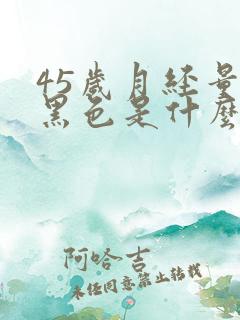 45歲月經量
黑色是什麼
阿哈吉
未经同意禁止转载